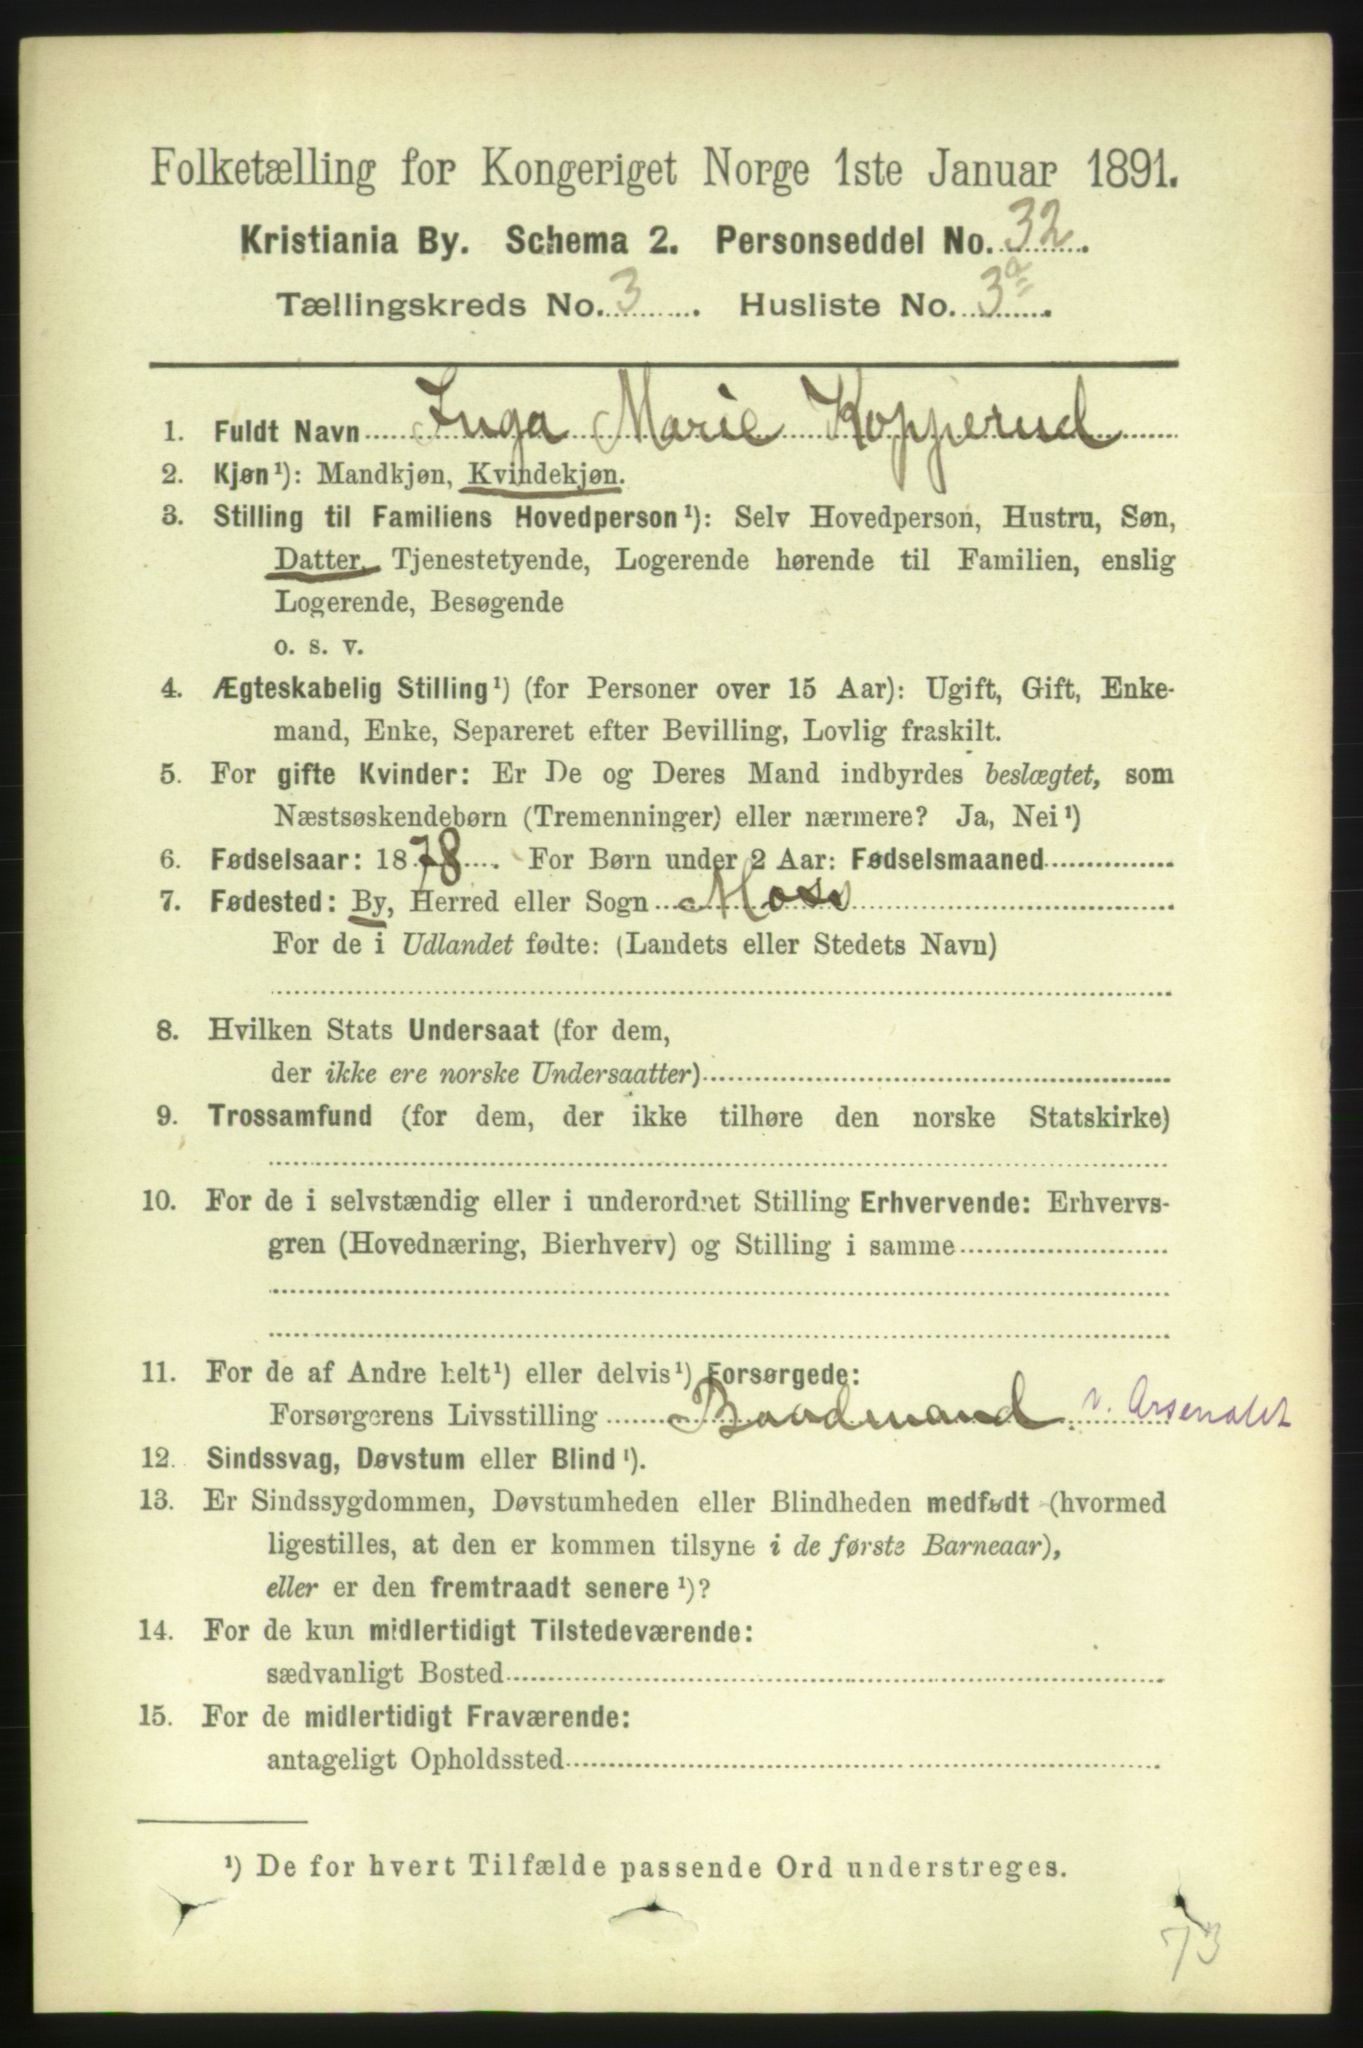 Folketælling for Kongeriget Norge 1ste Januar 1891.
Kristiania By. Schema 2. Personseddel No. 32.
Tællingskreds No. 3. Husliste No. 3a.
1. Fuldt Navn Inga Marie Kopperud
2. Kjøn¹): Mandkjøn, Kvindekjøn.
3. Stilling til Familiens Hovedperson¹): Selv Hovedperson, Hustru, Søn,
Datter, Tjenestetyende, Logerende hørende til Familien, enslig
Logerende, Besøgende
o. s. v.
4. Ægteskabelig Stilling¹) (for Personer over 15 Aar): Ugift, Gift, Enke-
mand, Enke, Separeret efter Bevilling, Lovlig fraskilt.
5. For gifte Kvinder: Er De og Deres Mand indbyrdes beslægtet, som
Næstsøskendebørn (Tremenninger) eller nærmere? Ja, Nei¹)
6. Fødselsaar: 1878. For Børn under 2 Aar: Fødselsmaaned
7. Fødested: By, Herred eller Sogn Moss
For de i Udlandet fødte: (Landets eller Stedets Navn)
8. Hvilken Stats Undersaat (for dem,
der ikke ere norske Undersaatter)
9. Trossamfund (for dem, der ikke tilhøre den norske Statskirke)
10. For de i selvstændig eller i underordnet Stilling Erhvervende: Erhvervs-
gren (Hovednæring, Bierhverv) og Stilling i samme
11. For de af Andre helt¹) eller delvis¹) Forsørgede:
Forsørgerens Livsstilling Baadmand v. Arsenalet
12. Sindssvag, Døvstum eller Blind¹).
13. Er Sindssygdommen, Døvstumheden eller Blindheden medfødt (hvormed
ligestilles, at den er kommen tilsyne i de første Barneaar),
eller er den fremtraadt senere¹)?
14. For de kun midlertidigt Tilstedeværende:
sædvanligt Bosted
15. For de midlertidigt Fraværende:
antageligt Opholdssted
¹) De for hvert Tilfælde passende Ord understreges.
73